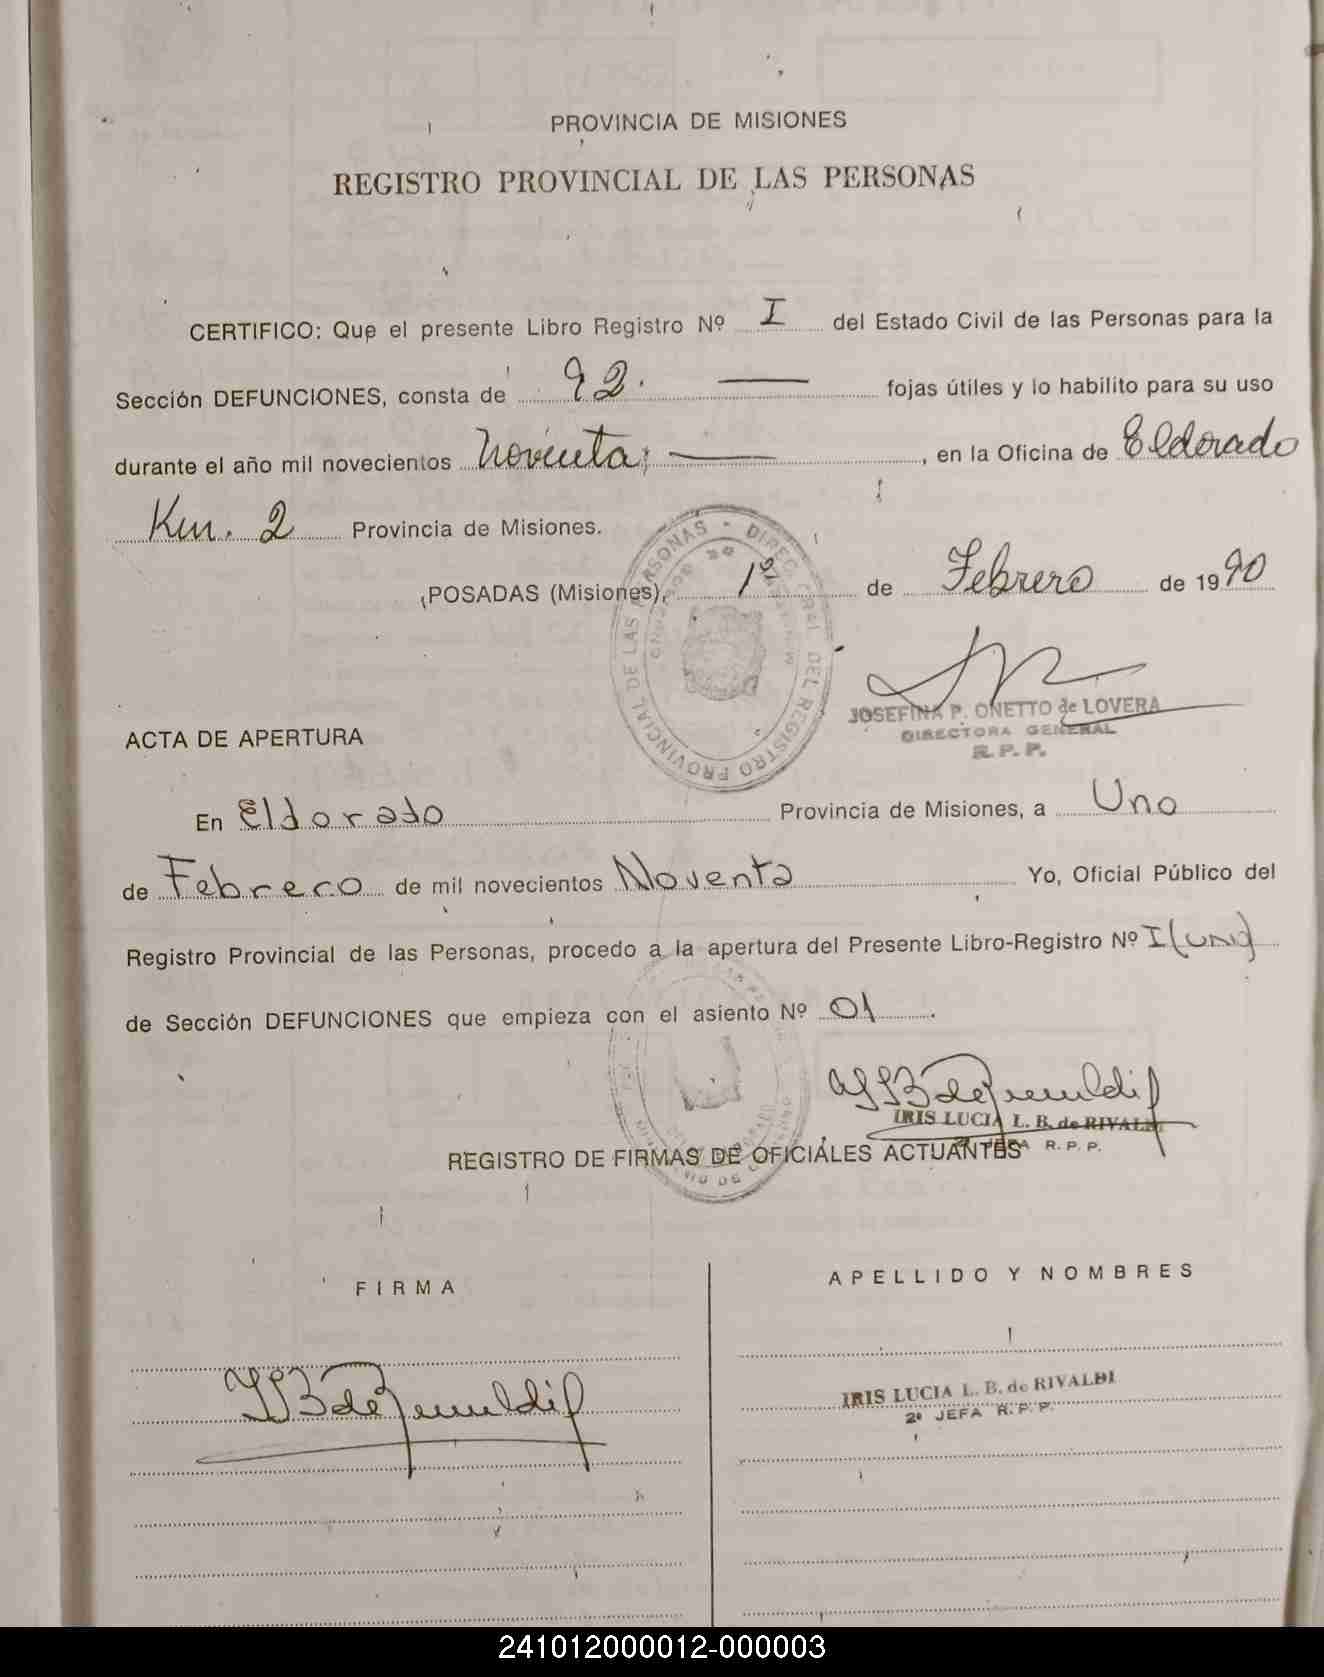 PROVINCIA DE MISIONES
REGISTRO PROVINCIAL DE LAS PERSONAS
CERTIFICO: Que el presente Libro Registro Nº I del Estado Civil de las Personas para la
Sección DEFUNCIONES, consta de 92. — fojas útiles y lo habilito para su uso
durante el año mil novecientos Noventa; —, en la Oficina de Eldorado
Km. 2 Provincia de Misiones.
POSADAS (Misiones), 1º de Febrero de 1990
DIREC. GRAL. DEL REGISTRO PROVINCIAL DE LAS PERSONAS
JOSEFINA P. ONETTO de LOVERA
DIRECTORA GENERAL
R. P. P.
ACTA DE APERTURA
En Eldorado Provincia de Misiones, a Uno
de Febrero de mil novecientos Noventa Yo, Oficial Público del
Registro Provincial de las Personas, procedo a la apertura del Presente Libro-Registro Nº I (uno)
de Sección DEFUNCIONES que empieza con el asiento Nº 01.
IRIS LUCIA L. B. de RIVALDI
2ª JEFA R. P. P.
REGISTRO DE FIRMAS DE OFICIALES ACTUANTES
FIRMA APELLIDO Y NOMBRES
IRIS LUCIA L. B. de RIVALDI
2ª JEFA R. P. P.
241012000012-000003